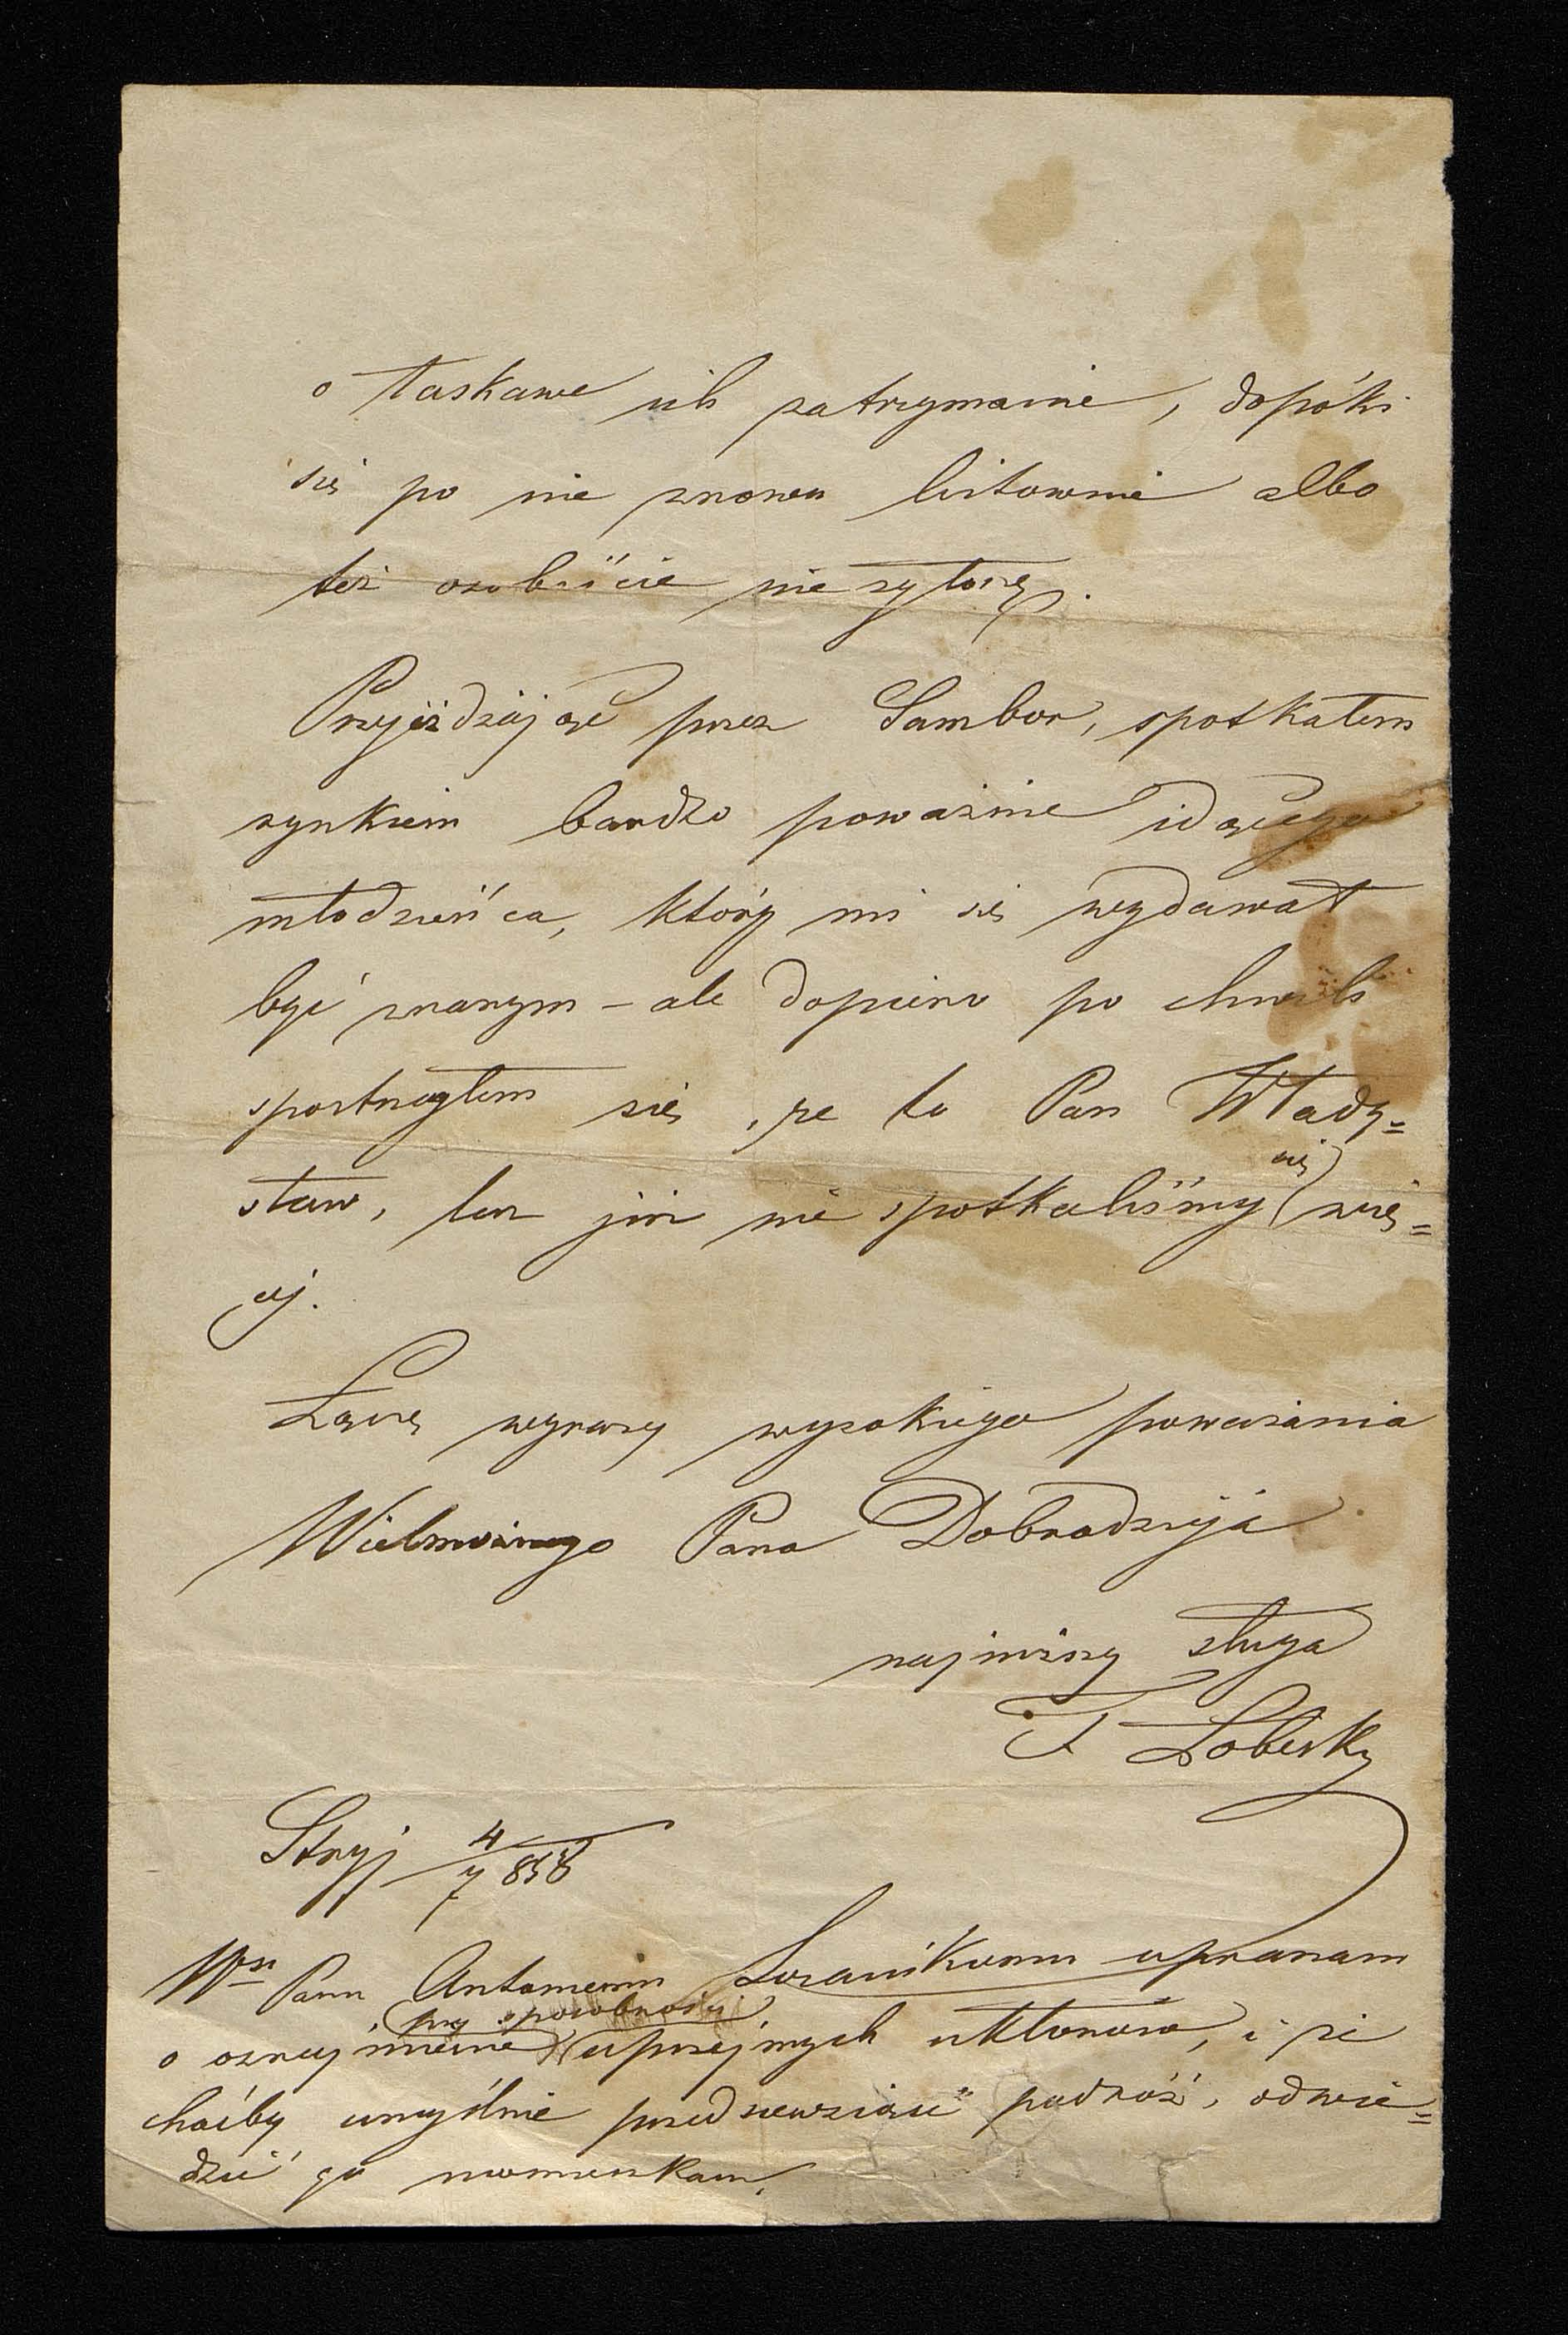 o łaskawe ich zatrzymanie, dopóki
się po nie znowu listownie albo
też osobiście nie zgłoszę.
Przejeżdżając przez Sambor, spotkałem
rynkiem bardzo poważnie idącego
młodzieńca, który mi się wydawał
być znanym – ale dopiero po chwili
spostrzegłem się, że to Pan Włady=
sław, lecz już nie spotkaliśmy się wię=
cej.
Łączę wyrazy wysokiego poważania
Wielmożnego Pana Dobrodzieja
najniższy sługa
F Łobesky
Stryj 4/7 858
Wmu Panu Antoniemu upraszam
o oznajmienie przy sposobności uprzejmych ukłonów, i że
choćby umyślnie przedsiewziąść podróż, odwie=
dzić go nieomieszkam.